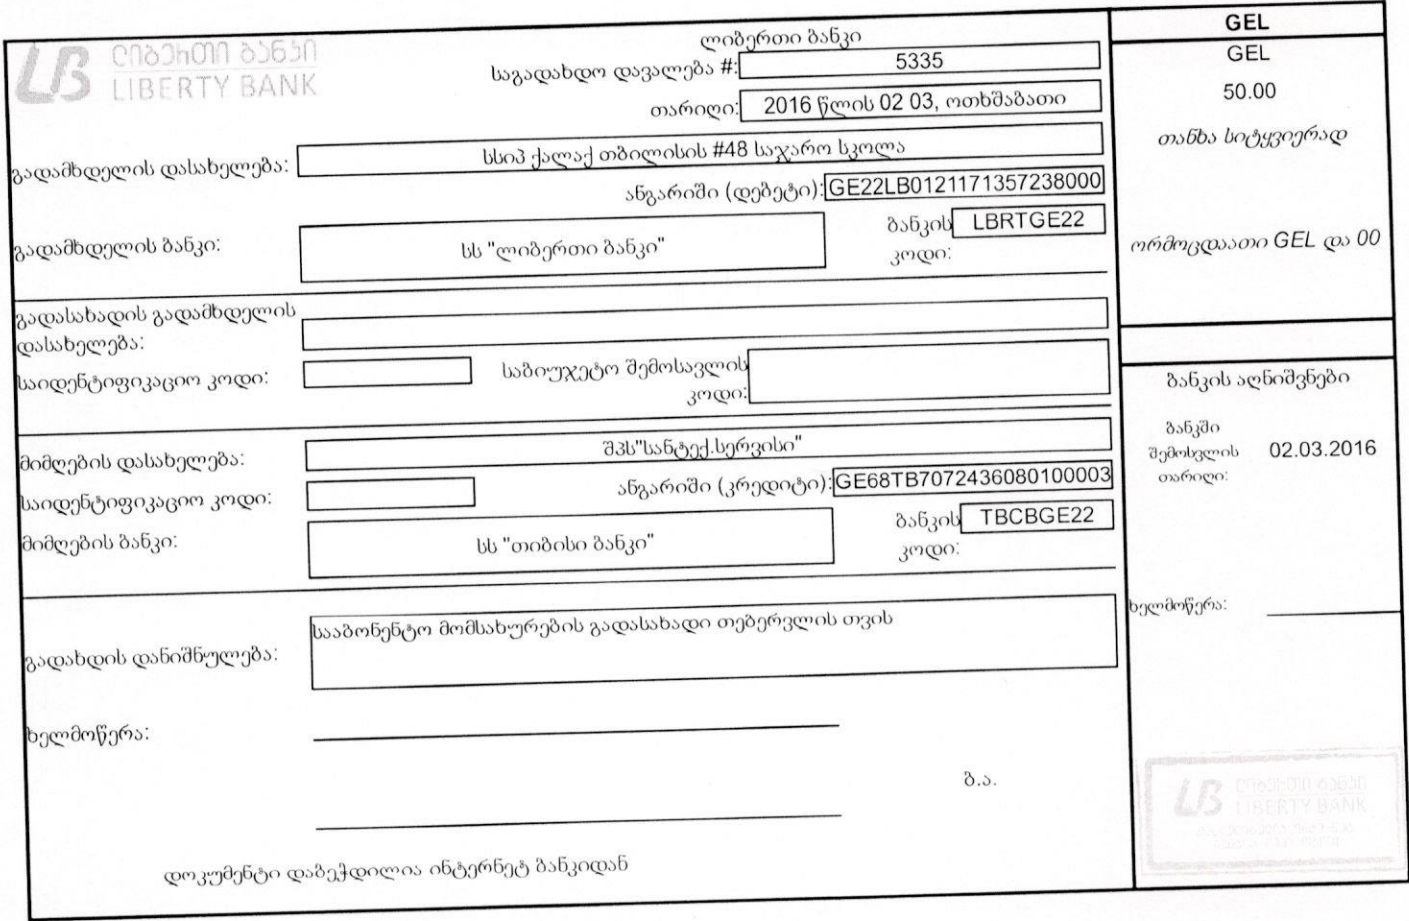 ლიბერთი ბანკი
LIBERTY BANK
ლიბერთი ბანკი
საგადახდო დავალება #: 5335
თარიღი: 2016 წლის 02 03, ოთხშაბათი
გადამხდელის დასახელება: სსიპ ქალაქ თბილისის #48 საჯარო სკოლა
ანგარიში (დებეტი): GE22LB0121171357238000
გადამხდელის ბანკი: სს "ლიბერთი ბანკი" ბანკის LBRTGE22
კოდი:
გადასახადის გადამხდელის
დასახელება:
საიდენტიფიკაციო კოდი: საბიუჯეტო შემოსავლის
კოდი:
მიმღების დასახელება: შპს"სანტექ.სერვისი"
საიდენტიფიკაციო კოდი: ანგარიში (კრედიტი): GE68TB7072436080100003
მიმღების ბანკი: სს "თიბისი ბანკი" ბანკის TBCBGE22
კოდი:
სააბონენტო მომსახურების გადასახადი თებერვლის თვის
გადახდის დანიშნულება:
ხელმოწერა:
ბ.ა.
დოკუმენტი დაბეჭდილია ინტერნეტ ბანკიდან
GEL
GEL
50.00
თანხა სიტყვიერად
ორმოცდაათი GEL და 00
ბანკის აღნიშვნები
ბანკში
შემოსვლის 02.03.2016
თარიღი:
ხელმოწერა:
ლიბერთი ბანკი
LIBERTY BANK